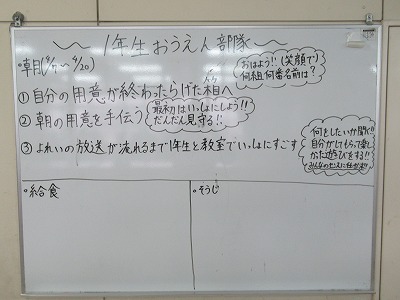 〜1年生おうえん部隊〜
・朝(4/7〜4/20)
おはよう!!(笑顔で)
何組何番名前は?
①自分の用意が終わったらげた箱へ
②朝の用意を手伝う
最初はいっしょにしよう!!
だんだん見守る!!
③よれいの放送が流れるまで1年生と教室でいっしょにすごす
何をしたいか聞く!!
自分がしてもらって楽し
かった遊びをする!!
みんなのセンスに任せます!!
・給食
・そうじ